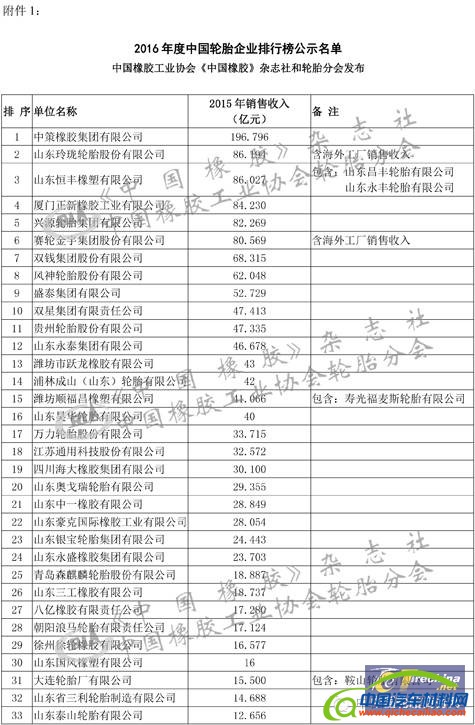 附件 1:
2016 年度中国轮胎企业排行榜公示名单
中国橡胶工业协会《中国橡胶》杂志社和轮胎分会发布
排 序 单位名称 2015年销售收入 (亿元) 备 注
1 中策橡胶集团有限公司 196.796
2 山东玲珑轮胎股份有限公司 86.194 含海外工厂销售收入
3 山东恒丰橡塑有限公司 86.027 包含: 山东昌丰轮胎有限公司
山东永丰轮胎有限公司
4 厦门正新橡胶工业有限公司 84.230
5 兴源轮胎集团有限公司 82.269
6 赛轮金宇集团股份有限公司 80.569 含海外工厂销售收入
7 双钱集团股份有限公司 68.315
8 风神轮胎股份有限公司 62.048
9 盛泰集团有限公司 52.729
10 双星集团有限责任公司 47.413
11 贵州轮胎股份有限公司 47.335
12 山东永泰集团有限公司 46.678
13 潍坊市跃龙橡胶有限公司 43
14 浦林成山（山东）轮胎有限公司 42
15 潍坊顺福昌橡塑有限公司 41.066 包含: 寿光福麦斯轮胎有限公司
16 山东昊华轮胎有限公司 40
17 万力轮胎股份有限公司 33.715
18 江苏通用科技股份有限公司 32.572
19 四川海大橡胶集团有限公司 30.100
20 山东奥戈瑞轮胎有限公司 29.355
21 山东中一橡胶有限公司 28.849
22 山东豪克国际橡胶工业有限公司 28.054
23 山东银宝轮胎集团有限公司 24.443
24 山东永盛橡胶集团有限公司 23.703
25 青岛森麒麟轮胎股份有限公司 18.887
26 山东三工橡胶有限公司 18.737
27 八亿橡胶有限责任公司 17.280
28 朝阳浪马轮胎有限责任公司 17.124
29 徐州徐轮橡胶有限公司 16.577
30 山东国风橡塑有限公司 16
31 大连轮胎厂有限公司 15.500 包含: 鞍山轮胎
32 山东省三利轮胎制造有限公司 14.688
33 山东泰山轮胎有限公司 12.656
《中国橡胶》杂志社
中国橡胶工业协会轮胎分会
《中国橡胶》杂志社
中国橡胶工业协会轮胎分会
《中国橡胶》杂志社
中国橡胶工业协会轮胎分会
中国汽车材料网